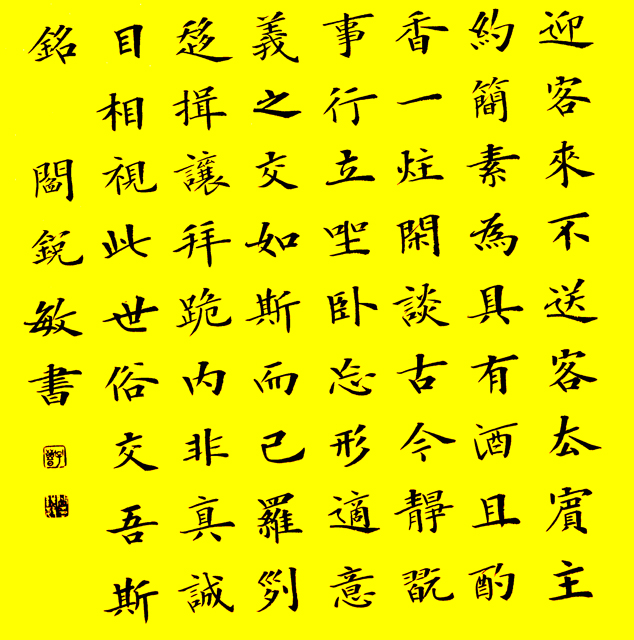 迎客來不送客厺賔主
約簡素為具有酒且酌
香一炷閑談古今靜翫
事行立坐卧忘形適意
義之交如斯而已羅列
趍揖讓拜跪内非真誠
目相視此世俗交吾斯
銘 閻銳敏書